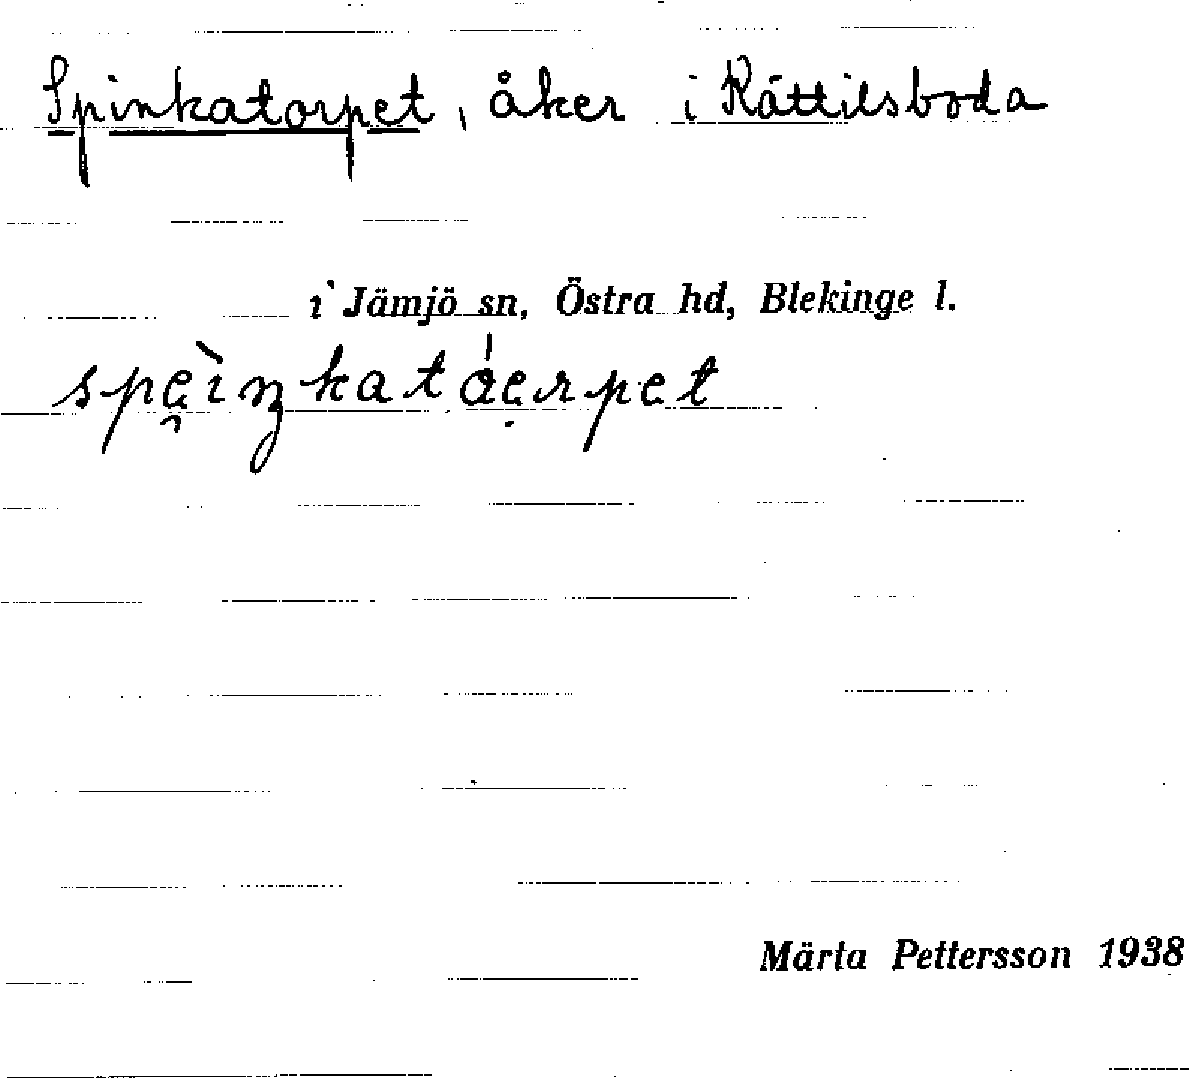 Spinkatorpet, åker i Rättilsboda
i Jämjö sn, Östra hd, Blekinge l.
spe̯ìŋkatáẹrpet
Märta Pettersson 1938